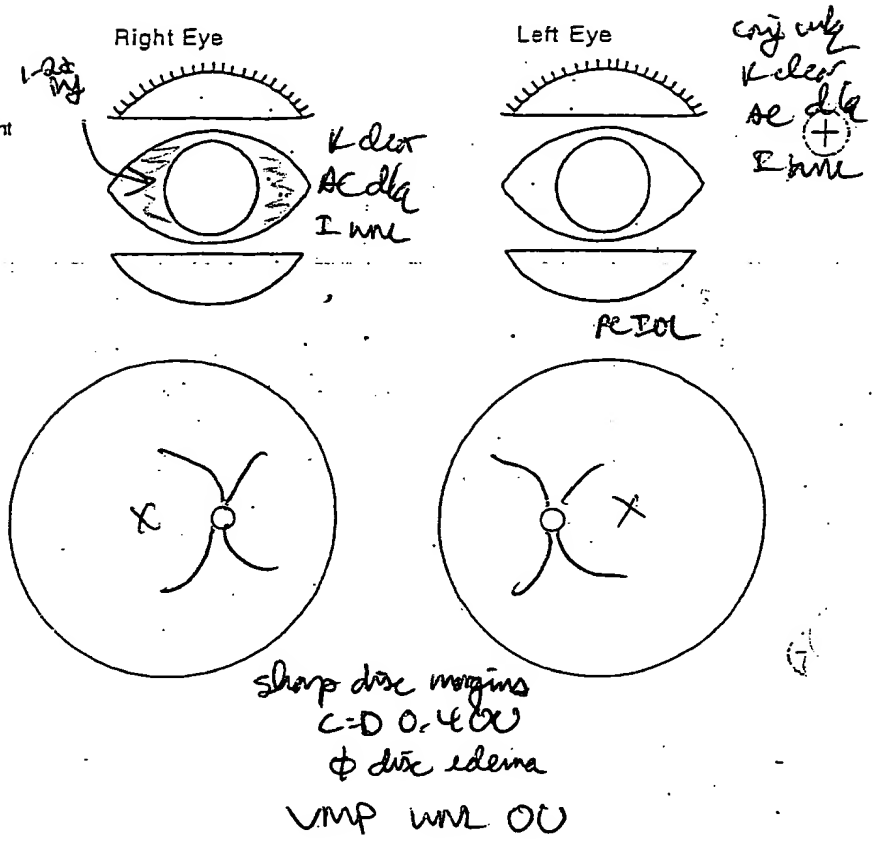 Right Eye
Left Eye
1-2+
inj
nt
K clear
AC d/q
I WNL
conj w/q
K clear
AC d/q
I WNL
PCIOL
sharp disc margins
C=D 0.4 OU
ϕ disc edema
VMP WNL OU